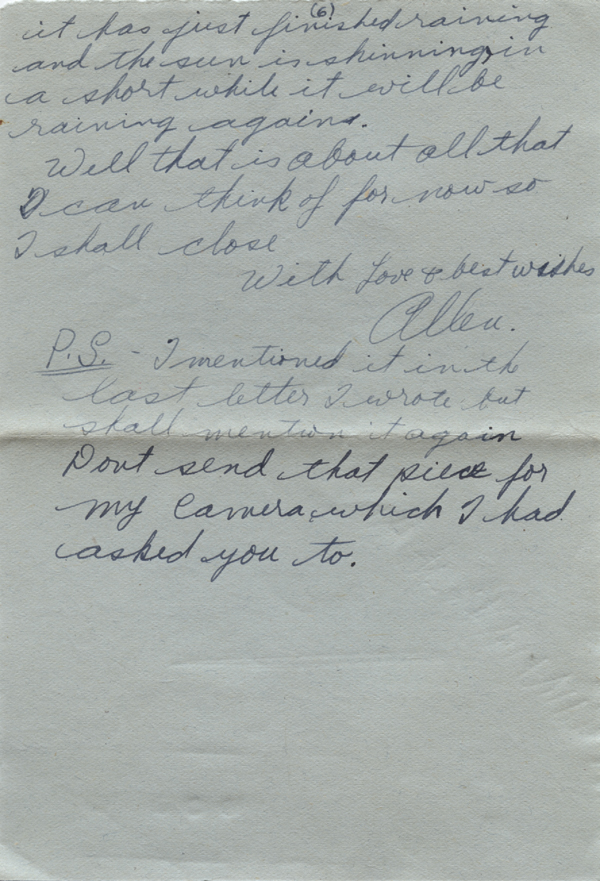 (6)
it has just finished raining
and the sun is shinning, in
a short while it will be
raining again.
Well that is about all that
I can think of for now so
I shall close
With Love & best wishes
Allen.
P.S. - I mentioned it in the
last letter I wrote but
shall mention it again
Dont send that piece for
my Camera which I had
asked you to.